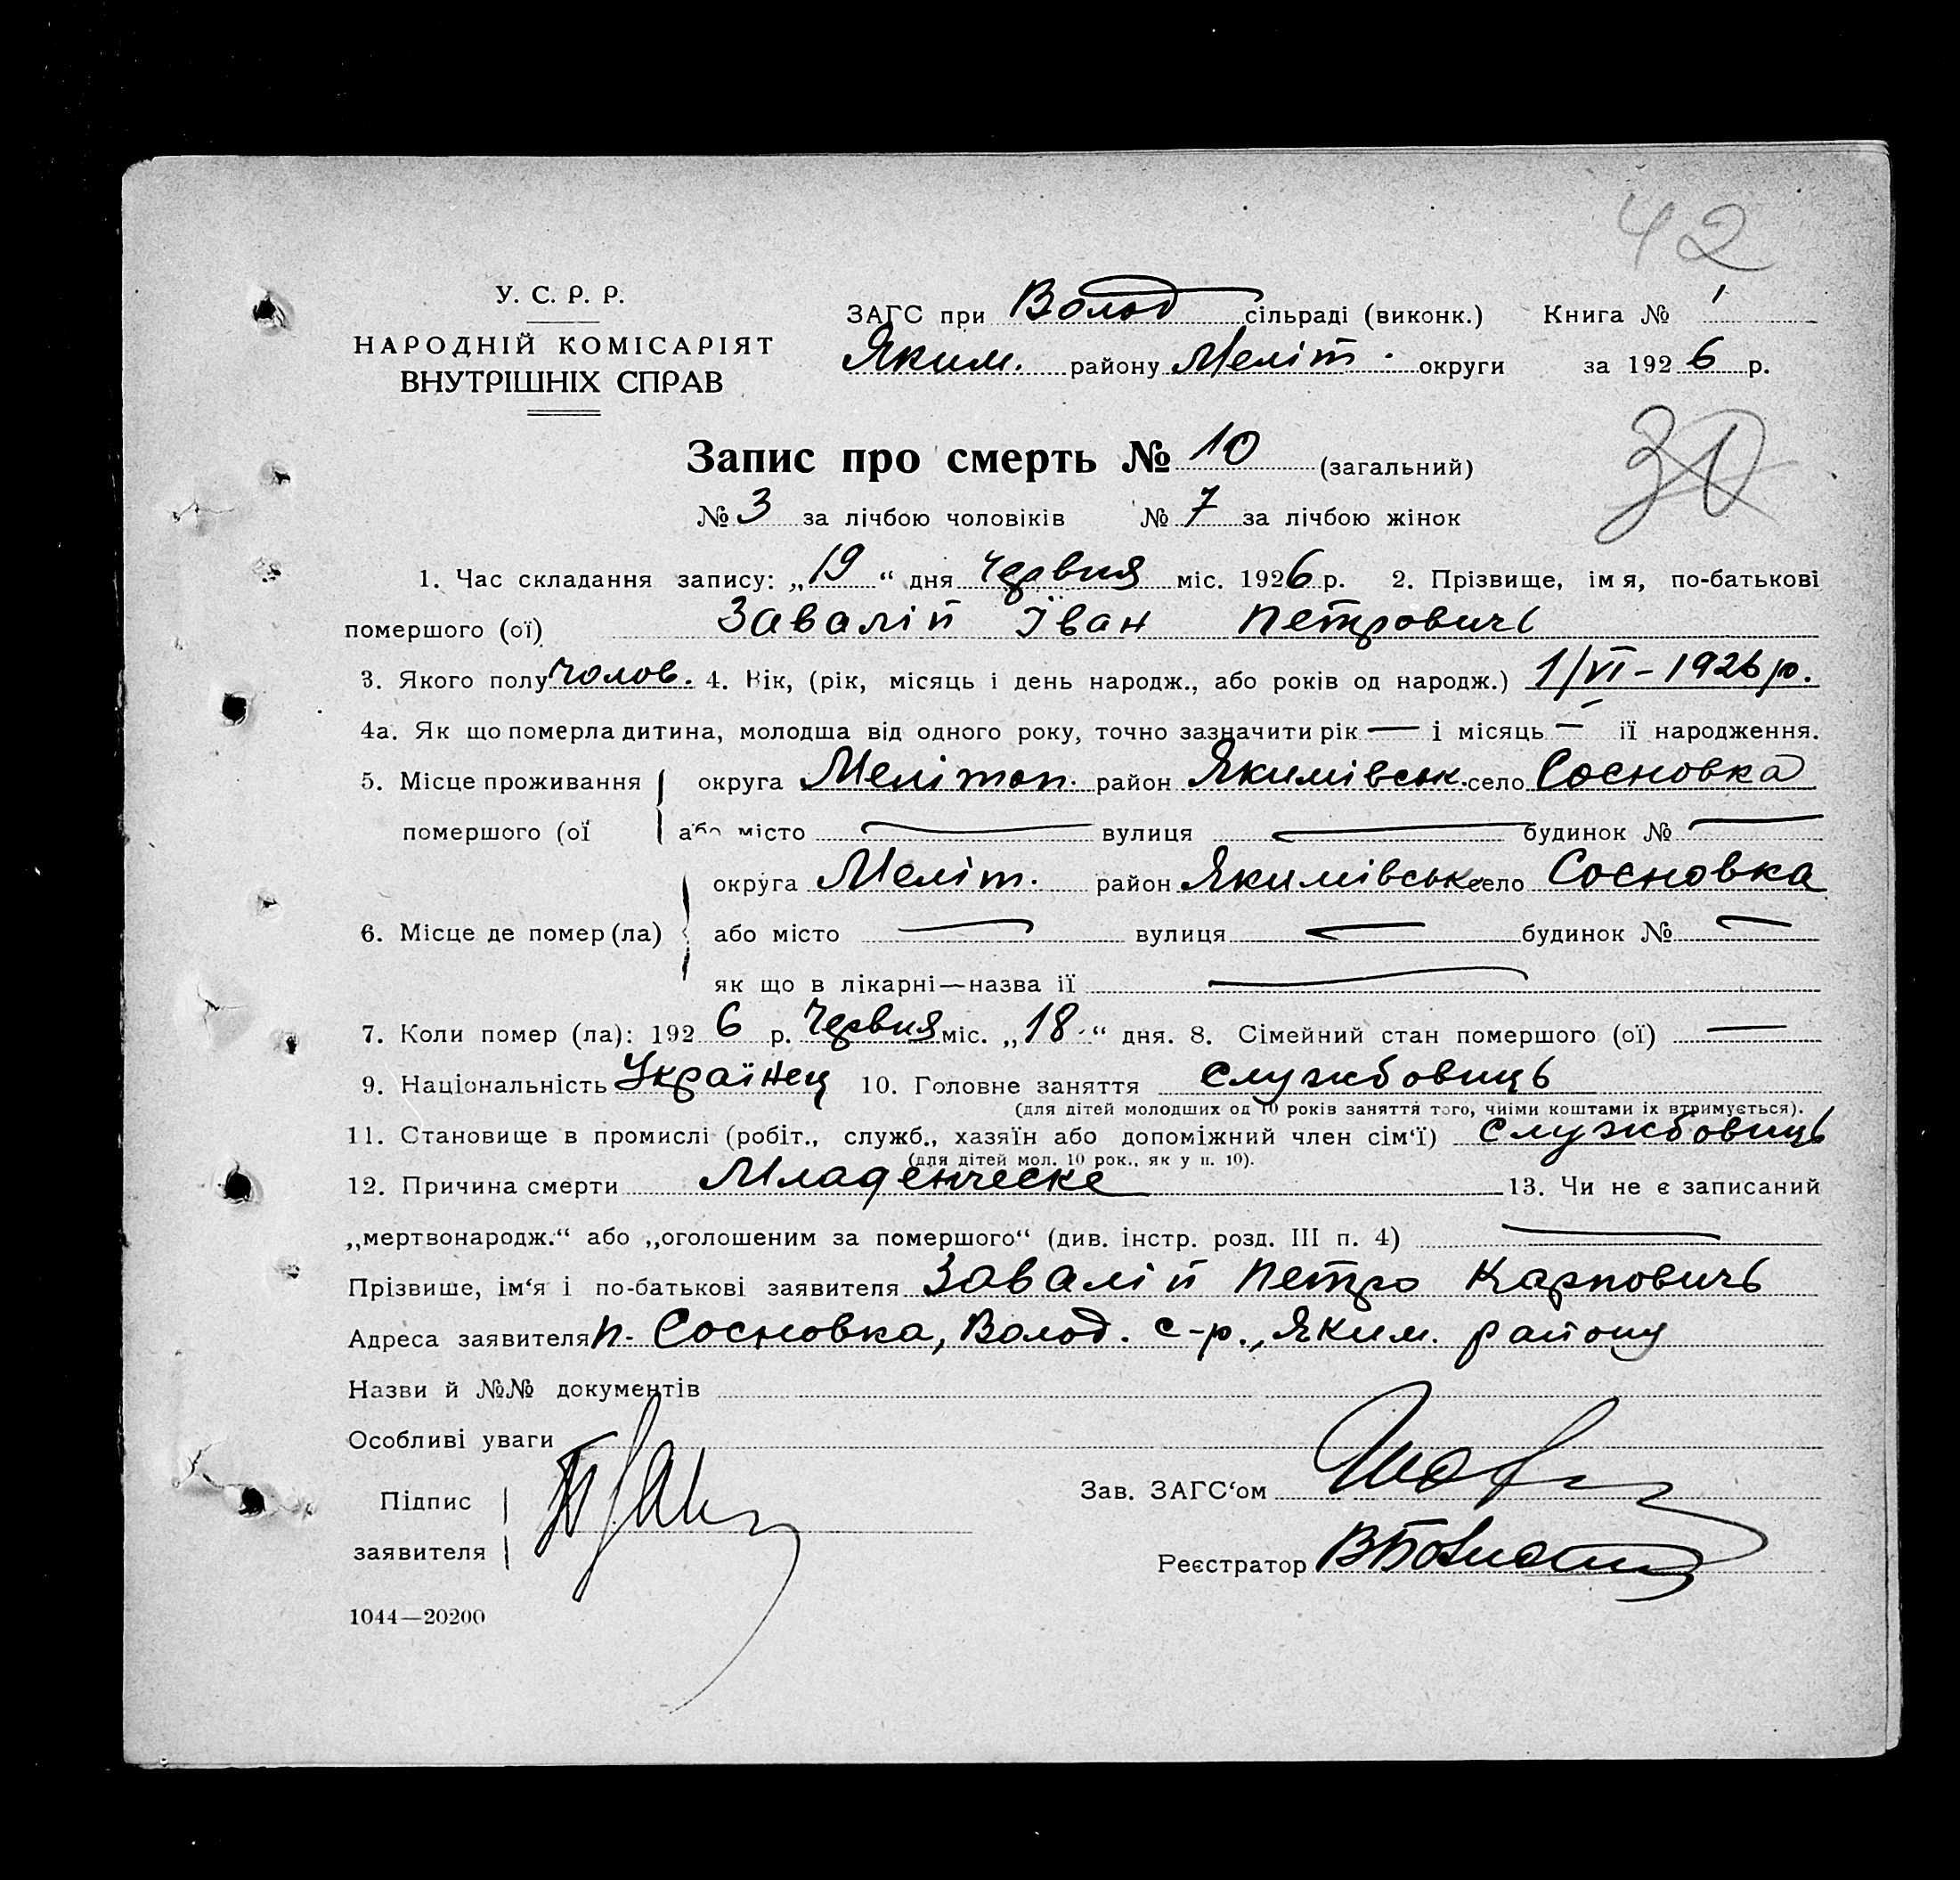 42
У. С. Р. Р.
НАРОДНІЙ КОМІСАРІЯТ
ВНУТРІШНІХ СПРАВ
ЗАГС при Волод сільраді (виконк.) Книга № 1
Яким. району Меліт. округи за 1926 р.
30
Запис про смерть № 10 (загальний)
№ 3 за лічбою чоловіків № 7 за лічбою жінок
1. Час складання запису: „19“ дня Червня міс. 1926 р. 2. Прізвище, імя, по-батькові
помершого (ої) Завалій Іван Петровичь
3. Якого полу чолов. 4. Вік, (рік, місяць і день народж., або років од народж.) 1/VI – 1926 р.
4а. Як що померла дитина, молодша від одного року, точно зазначити рік — і місяць — ії народження.
5. Місце проживання округа Мелітоп. район Якимівськ. село Сосновка
помершого (ої або місто — вулиця — будинок № —
округа Меліт. район Якимівськ село Сосновка
6. Місце де помер(ла) або місто — вулиця — будинок № —
як що в лікарні—назва ії —
7. Коли помер (ла): 1926 р. Червня міс. „18“ дня. 8. Сімейний стан помершого (ої) —
9. Національність Українец 10. Головне заняття службовиць
(для дітей молодших од 10 років заняття того, чиіми коштами іх втримується).
11. Становище в промислі (робіт., служб., хазяїн або допоміжний член сім‘ї) службовиць
(для дітей мол. 10 рок., як у п. 10).
12. Причина смерти Младенческе 13. Чи не є записаний
„мертвонародж.“ або „оголошеним за помершого“ (див. інстр. розд. III п. 4) —
Прізвише, ім‘я і по-батькові заявителя Завалій Петро Карповичь
Адреса заявителя п. Сосновка, Волод. с-р., Яким. району
Назви й №№ документів
Особливі уваги
Підпис
заявителя
Зав. ЗАГС‘ом
Реєстратор
1044—20200